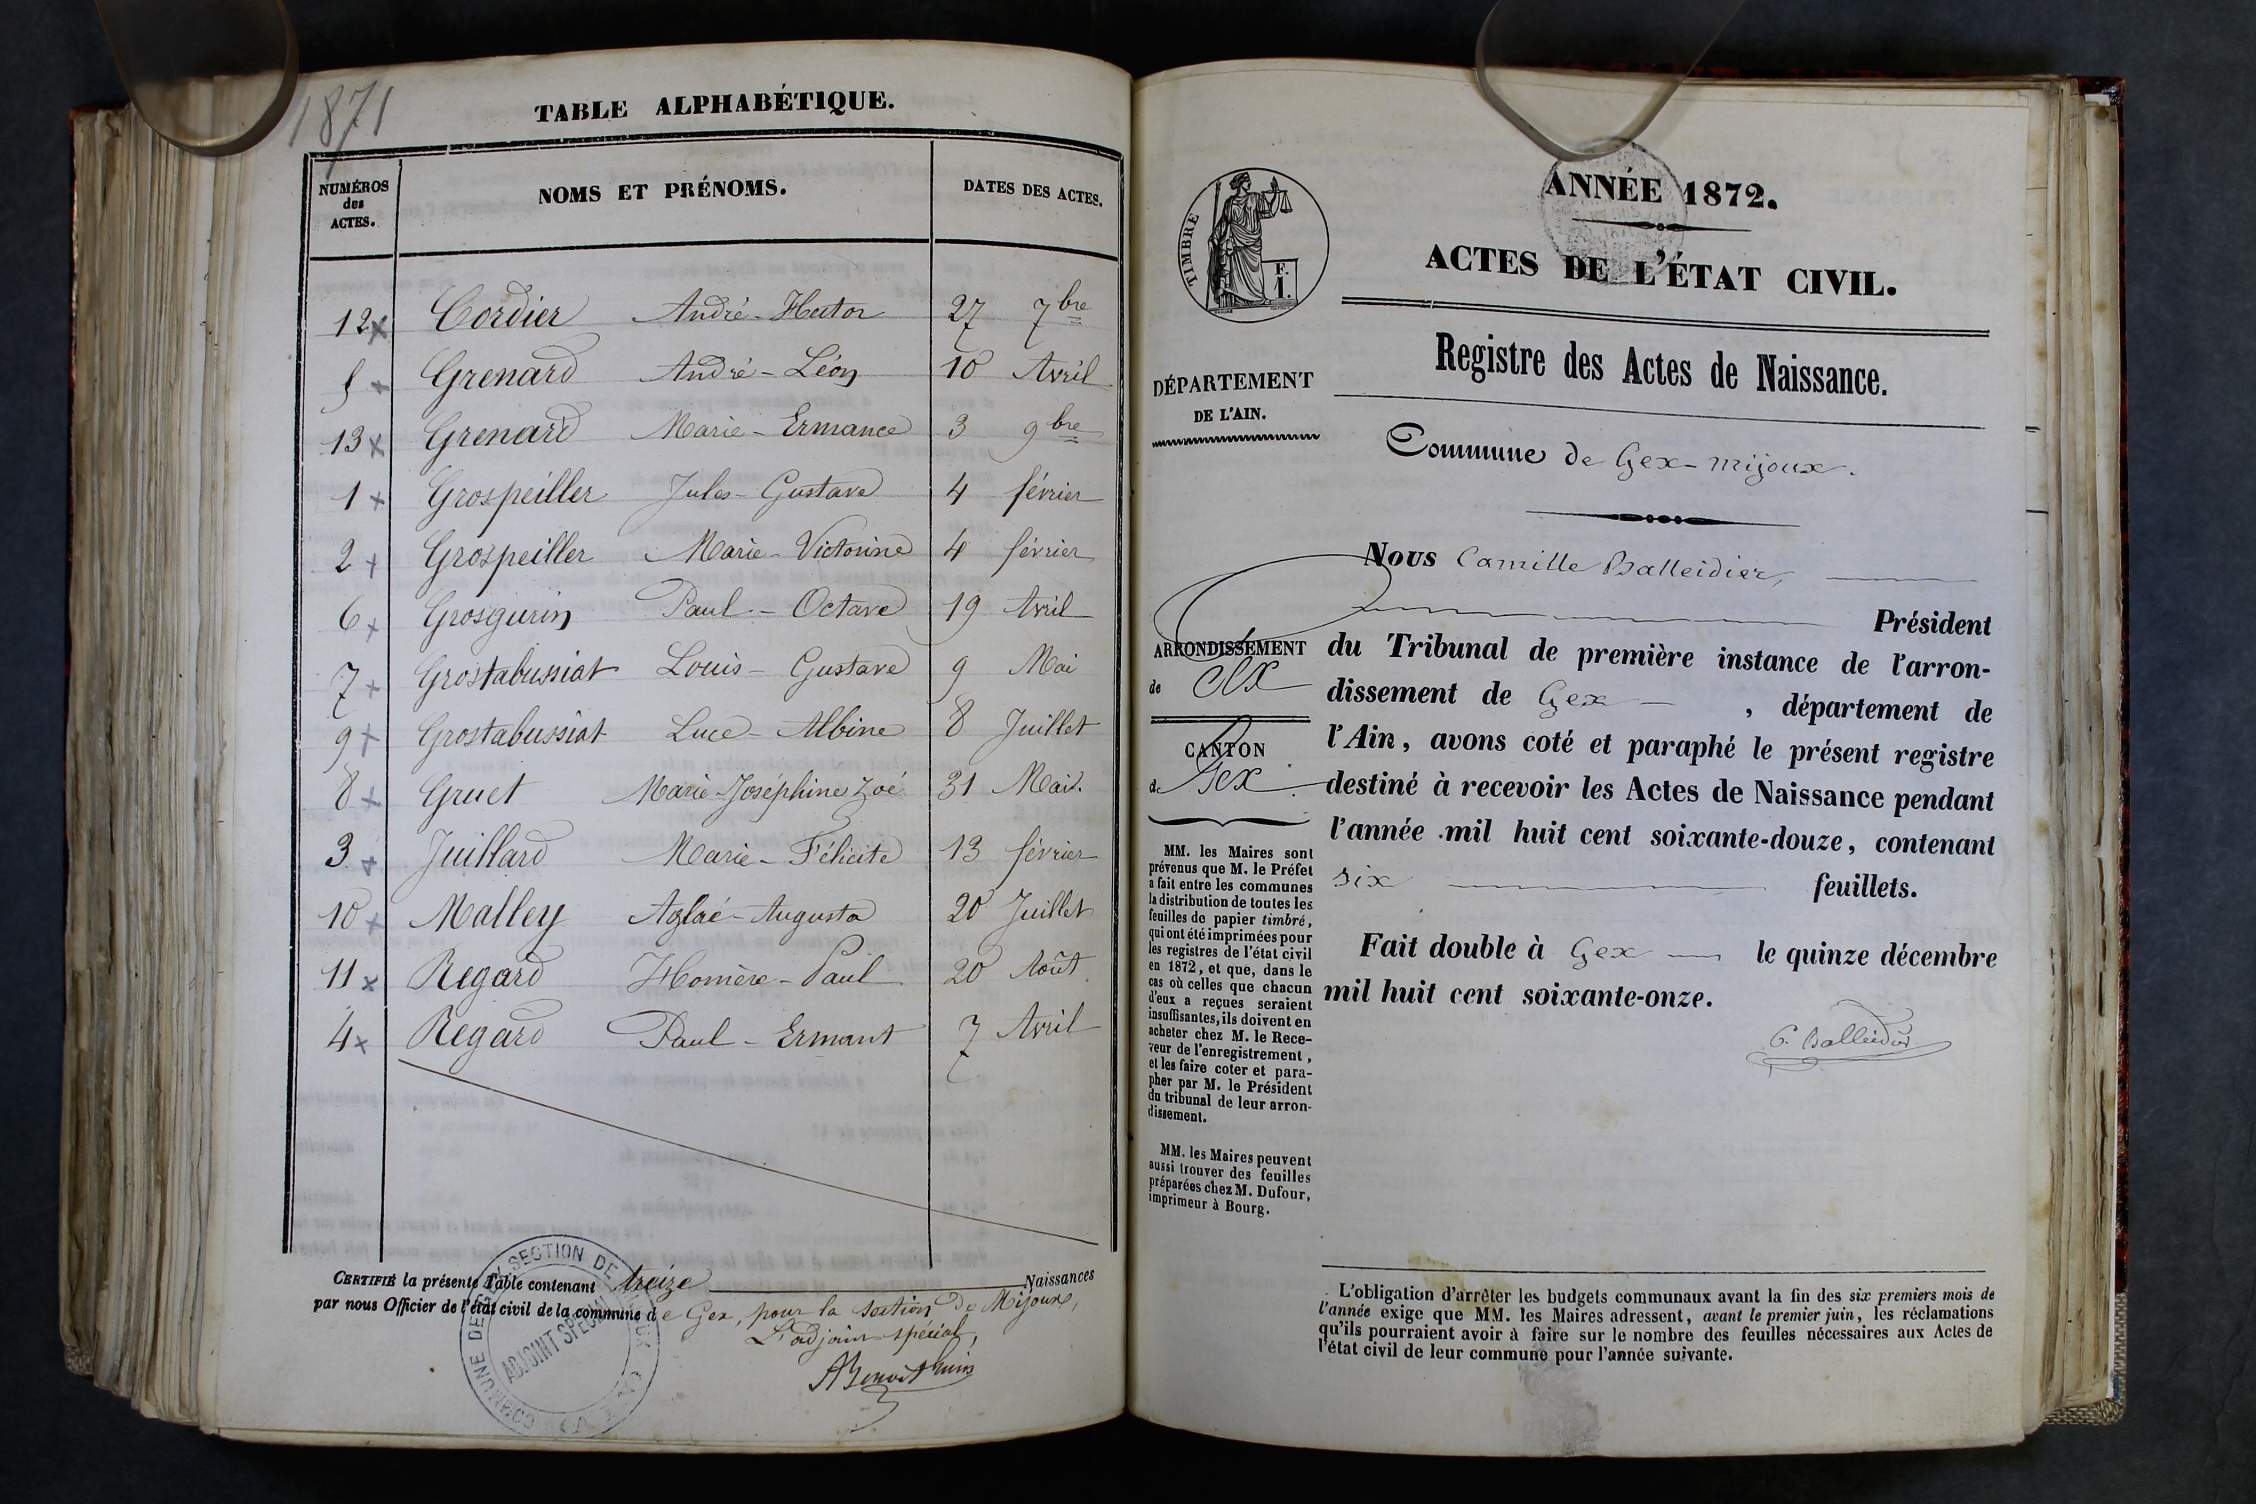 1871
TABLE ALPHABÉTIQUE.
NUMÉROS des ACTES. NOMS ET PRÉNOMS. DATES DES ACTES.
12 x Cordier André-Hector 27 7bre
5 x Grenard André-Léon 10 Avril
13 x Grenard Marie-Ermance 3 9bre
1 x Grospeiller Jules-Gustave 4 février
2 x Grospeiller Marie-Victorine 4 février
6 x Grosgurin Paul-Octave 19 Avril
7 x Grostabussiat Louis-Gustave 9 Mai
9 x Grostabussiat Luce-Albine 8 Juillet
8 x Gruet Marie-Joséphine Zoé 31 Mai.
3 x Juillard Marie-Félicite 13 février
10 x Malley Aglaé-Augusta 20 Juillet
11 x Regard Homère-Paul 20 Août
4 x Regard Paul-Ermant 7 Avril
CERTIFIÉ la présente Table contenant treize Naissances
par nous Officier de l'état civil de la commune de Gex, pour la section de Mijoux,
L'adjoint spécial,
SECTION DE
COMMUNE DE
ADJOINT SPÉCIAL
ANNÉE 1872.
ACTES DE L'ÉTAT CIVIL.
TIMBRE
F.
1.
Registre des Actes de Naissance.
DÉPARTEMENT
DE L'AIN.
Commune de Gex-mijoux.
ARRONDISSEMENT
de Gex
CANTON
de Gex
MM. les Maires sont
prévenus que M. le Préfet
a fait entre les communes
la distribution de toutes les
feuilles de papier timbré,
qui ont été imprimées pour
les registres de l'état civil
en 1872, et que, dans le
cas où celles que chacun
d'eux a reçues seraient
insuffisantes, ils doivent en
acheter chez M. le Rece-
veur de l'enregistrement,
et les faire coter et para-
pher par M. le Président
du tribunal de leur arron-
dissement.
MM. les Maires peuvent
aussi trouver des feuilles
préparées chez M. Dufour,
imprimeur à Bourg.
Nous Camille Balleidier,
Président
du Tribunal de première instance de l'arron-
dissement de Gex, département de
l'Ain, avons coté et paraphé le présent registre
destiné à recevoir les Actes de Naissance pendant
l'année mil huit cent soixante-douze, contenant
six feuillets.
Fait double à Gex le quinze décembre
mil huit cent soixante-onze.
C. Balleidier
L'obligation d'arrêter les budgets communaux avant la fin des six premiers mois de
l'année exige que MM. les Maires adressent, avant le premier juin, les réclamations
qu'ils pourraient avoir à faire sur le nombre des feuilles nécessaires aux Actes de
l'état civil de leur commune pour l'année suivante.